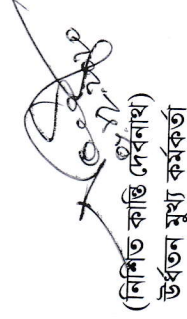 (নিশিত কান্তি দেবনাথ)
উর্ধতন মুখ্য কর্মকর্তা